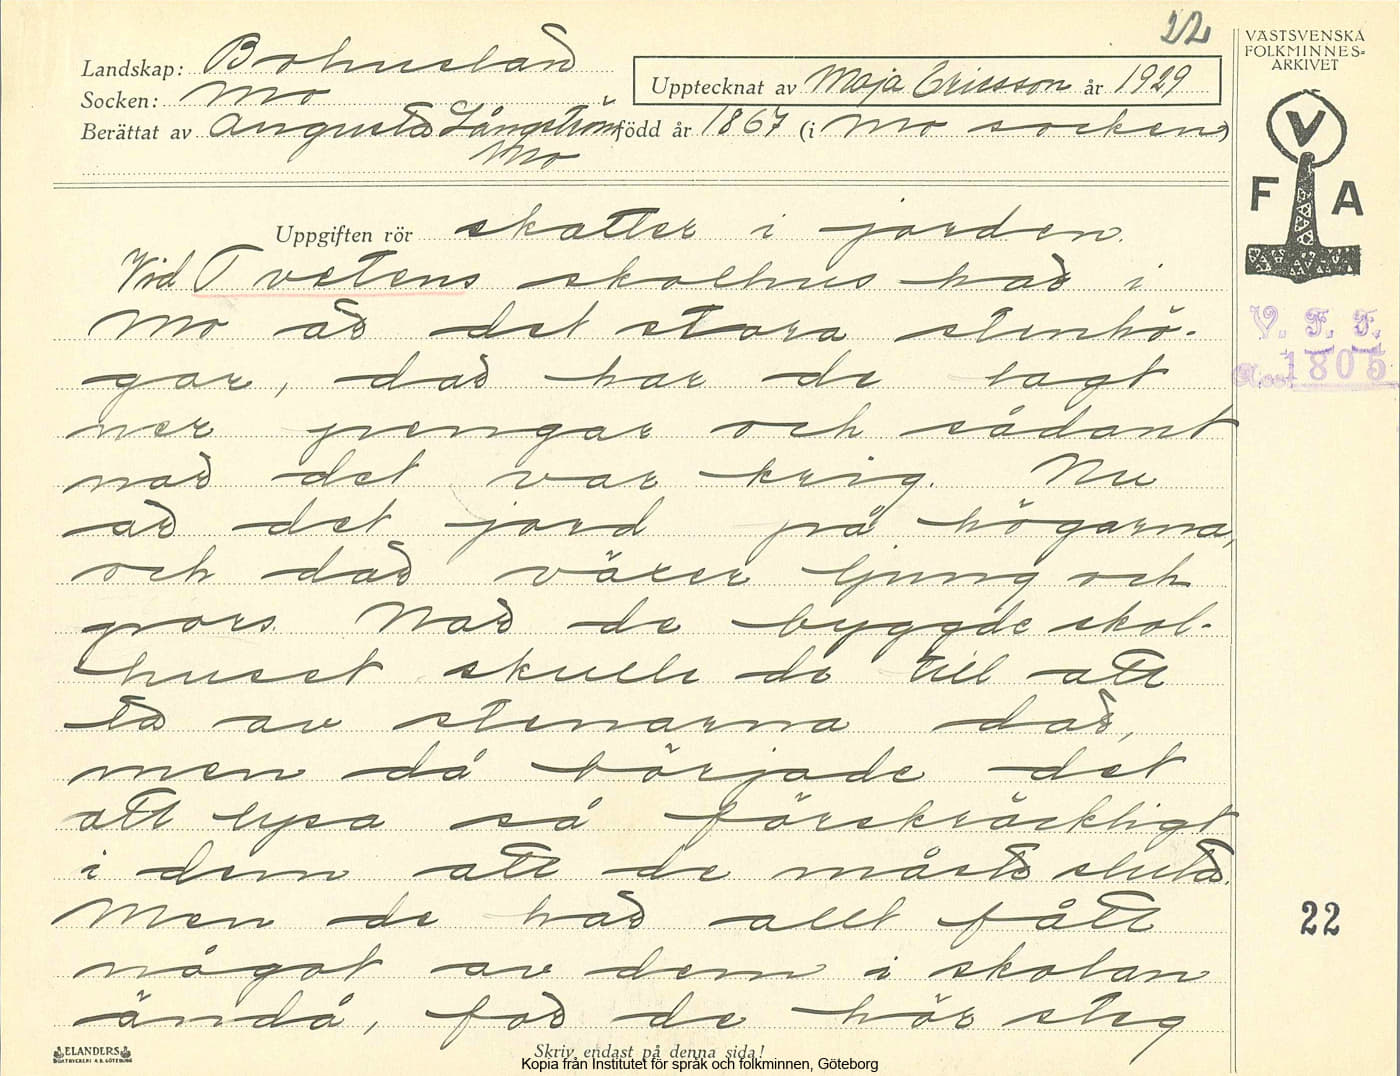 22
VÄSTSVENSKA
FOLKMINNES=
ARKIVET
Landskap: Bohuslän
Socken: Mo
Upptecknat av Maja Ericsson år 1929
Berättat av Augusta Långström född år 1867 (i Mo socken)
Mo
V
F A
Uppgiften rör skatter i jorden.
Vid Tvetens skolhus här i
Mo är det stora stenhö-
gar, där har de lagt
ner pengar och sådant
när det var krig. Nu
är det jord på högarna,
och där växer ljung och
pors. När de byggde skol-
huset skulle de till att
ta av stenarna där,
men då började det
att lysa så förskräckligt
i dem att de måste sluta.
Men de har allt fått
något av dem i skolan
ändå, för de hör steg
V. F. F.
Acc. 1805
22
ELANDERS
BOKTRYCKERI A.B. GÖTEBORG
Skriv endast på denna sida!
Kopia från Institutet för språk och folkminnen, Göteborg